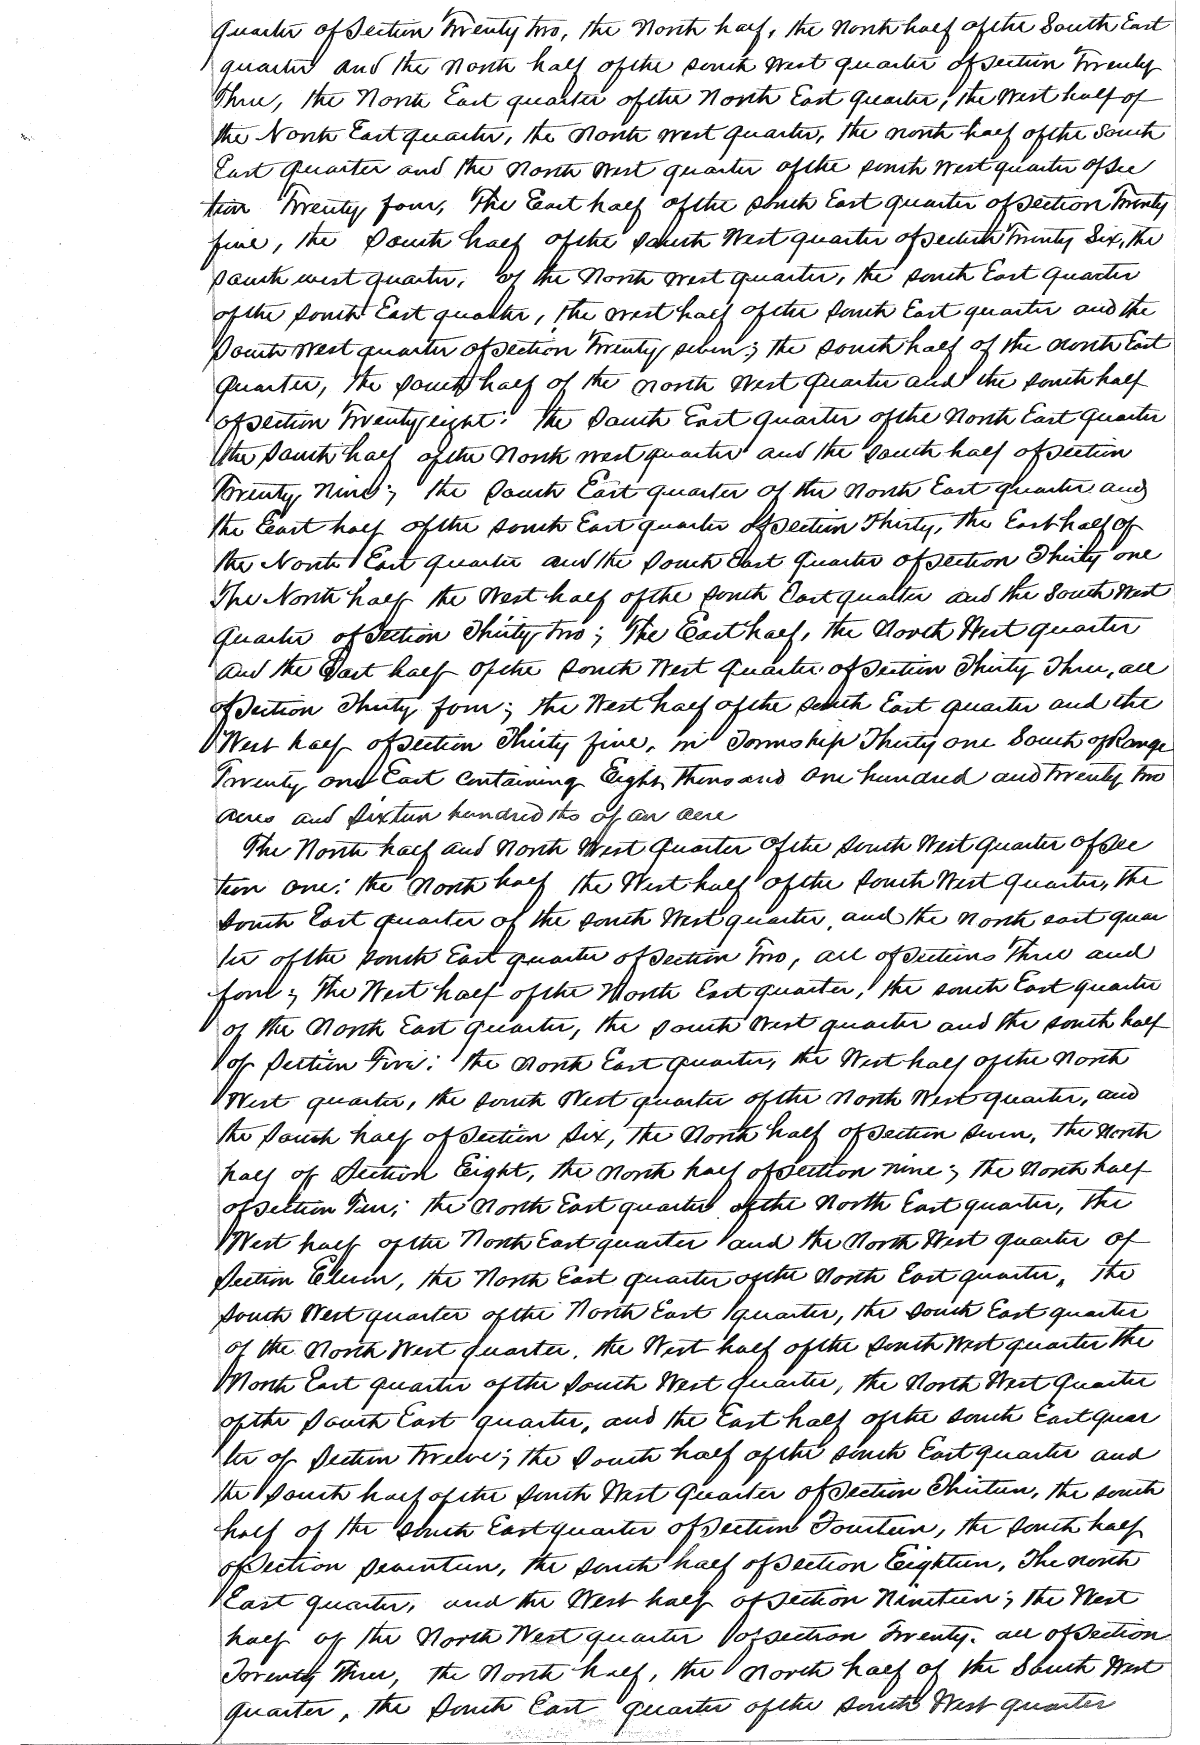 quarter of Section Twenty two, the North half, the North half of the South East
quarter and the North half of the South West quarter of Section Twenty
Three, the North East quarter of the North East quarter, the West half of
the North East quarter, the North West quarter, the north half of the South
East Quarter and the North West quarter of the South West quarter of Sec
tion Twenty four, The East half of the South East quarter of Section Twenty
five, the South half of the South West quarter of Section Twenty Six, the
South west quarter, of the North West quarter, the South East quarter
of the South East quarter, the West half of the South East quarter and the
South West quarter of Section Twenty seven; the South half of the North East
Quarter, the South half of the North West Quarter and the South half
of Section Twenty eight: the South East Quarter of the North East Quarter
the South half of the North west quarter and the South half of Section
Twenty Nine; the South East quarter of the North East quarter and
the East half of the South East quarter of Section Thirty, the East half of
the North East quarter and the South East Quarter of Section Thirty one
The North half the West half of the South East quarter and the South West
Quarter of Section Thirty two; The East half, the North West quarter
and the East half of the South West Quarter of Section Thirty Three, all
of Section Thirty four; the West half of the South East quarter and the
West half of Section Thirty five, in Township Thirty one South of Range
Twenty one East containing Eight Thousand One hundred and Twenty two
acres and Sixteen hundredths of an acre
The North half and North West Quarter of the South West Quarter of Sec
tion one: the North half the West half of the South West quarter, the
South East quarter of the South West quarter, and the North east quar
ter of the South East quarter of Section Two, all of Sections Three and
four; The West half of the North East quarter, the South East quarter
of the North East quarter, the South West quarter and the South half
of Section Five: the North East quarter, the West half of the North
West quarter, the South West quarter of the North West quarter, and
the South half of Section Six, the North half of Section Seven, The North
half of Section Eight, the North half of Section nine; the North half
of Section Ten; the North East quarter of the North East quarter, the
West half of the North East quarter and the North West quarter of
Section Eleven, the North East quarter of the North East quarter, the
South West quarter of the North East quarter, the South East quarter
of the North West quarter, the West half of the South West quarter the
North East quarter of the South West quarter, the North West Quarter
of the South East quarter, and the East half of the South East Quar
ter of Section Twelve; the South half of the South East quarter and
the South half of the South West Quarter of Section Thirteen, the South
half of the South East quarter of Section Fourteen, the South half
of Section Seventeen, the South half of Section Eighteen, The North
East quarter, and the West half of Section Nineteen; the West
half of the North West quarter of Section Twenty. all of Section
Twenty Three, the North half, the North half of the South West
quarter, the South East quarter of the South West quarter